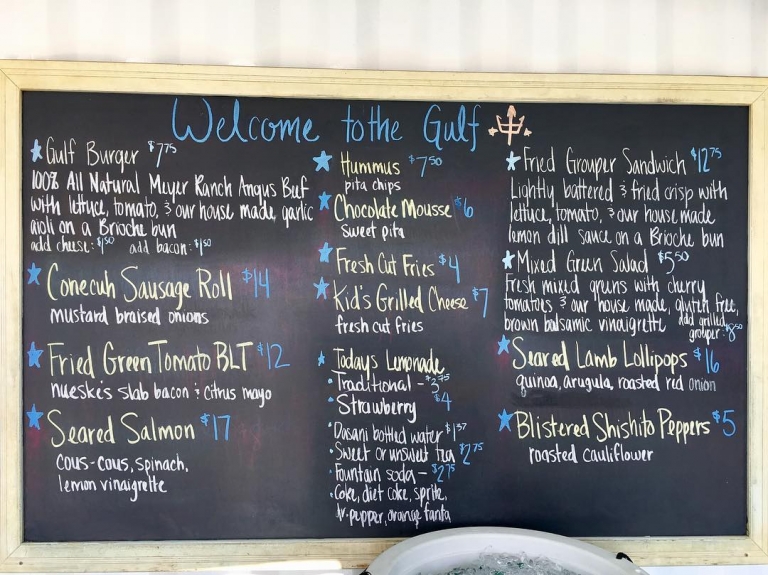 Welcome to the Gulf
Gulf Burger $7.75
100% All Natural Meyer Ranch Angus Beef
with lettuce, tomato, & our house made, garlic
aioli on a Brioche bun
add cheese: $1.50 add bacon: $1.50
Conecuh Sausage Roll $14
mustard braised onions
Fried Green Tomato BLT $12
nueske's slab bacon & citrus mayo
Seared Salmon $17
cous-cous, spinach,
lemon vinaigrette
Hummus $7.50
pita chips
Chocolate Mousse $6
sweet pita
Fresh Cut Fries $4
Kid's Grilled Cheese $7
fresh cut fries
Todays Lemonade
• Traditional - $3.75
• Strawberry $4
• Dasani bottled water $1.37
• Sweet or unsweet tea $2.75
• Fountain soda - $2.75
• Coke, diet coke, sprite,
dr. pepper, orange fanta
Fried Grouper Sandwich $12.75
Lightly battered & fried crisp with
lettuce, tomato, & our house made
lemon dill sauce on a Brioche bun
Mixed Green Salad $5.50
Fresh mixed greens with cherry
tomatoes & our house made, gluten free,
brown balsamic vinaigrette add grilled
grouper: $8.50
Seared Lamb Lollipops $16
quinoa, arugula, roasted red onion
Blistered Shishito Peppers $5
roasted cauliflower